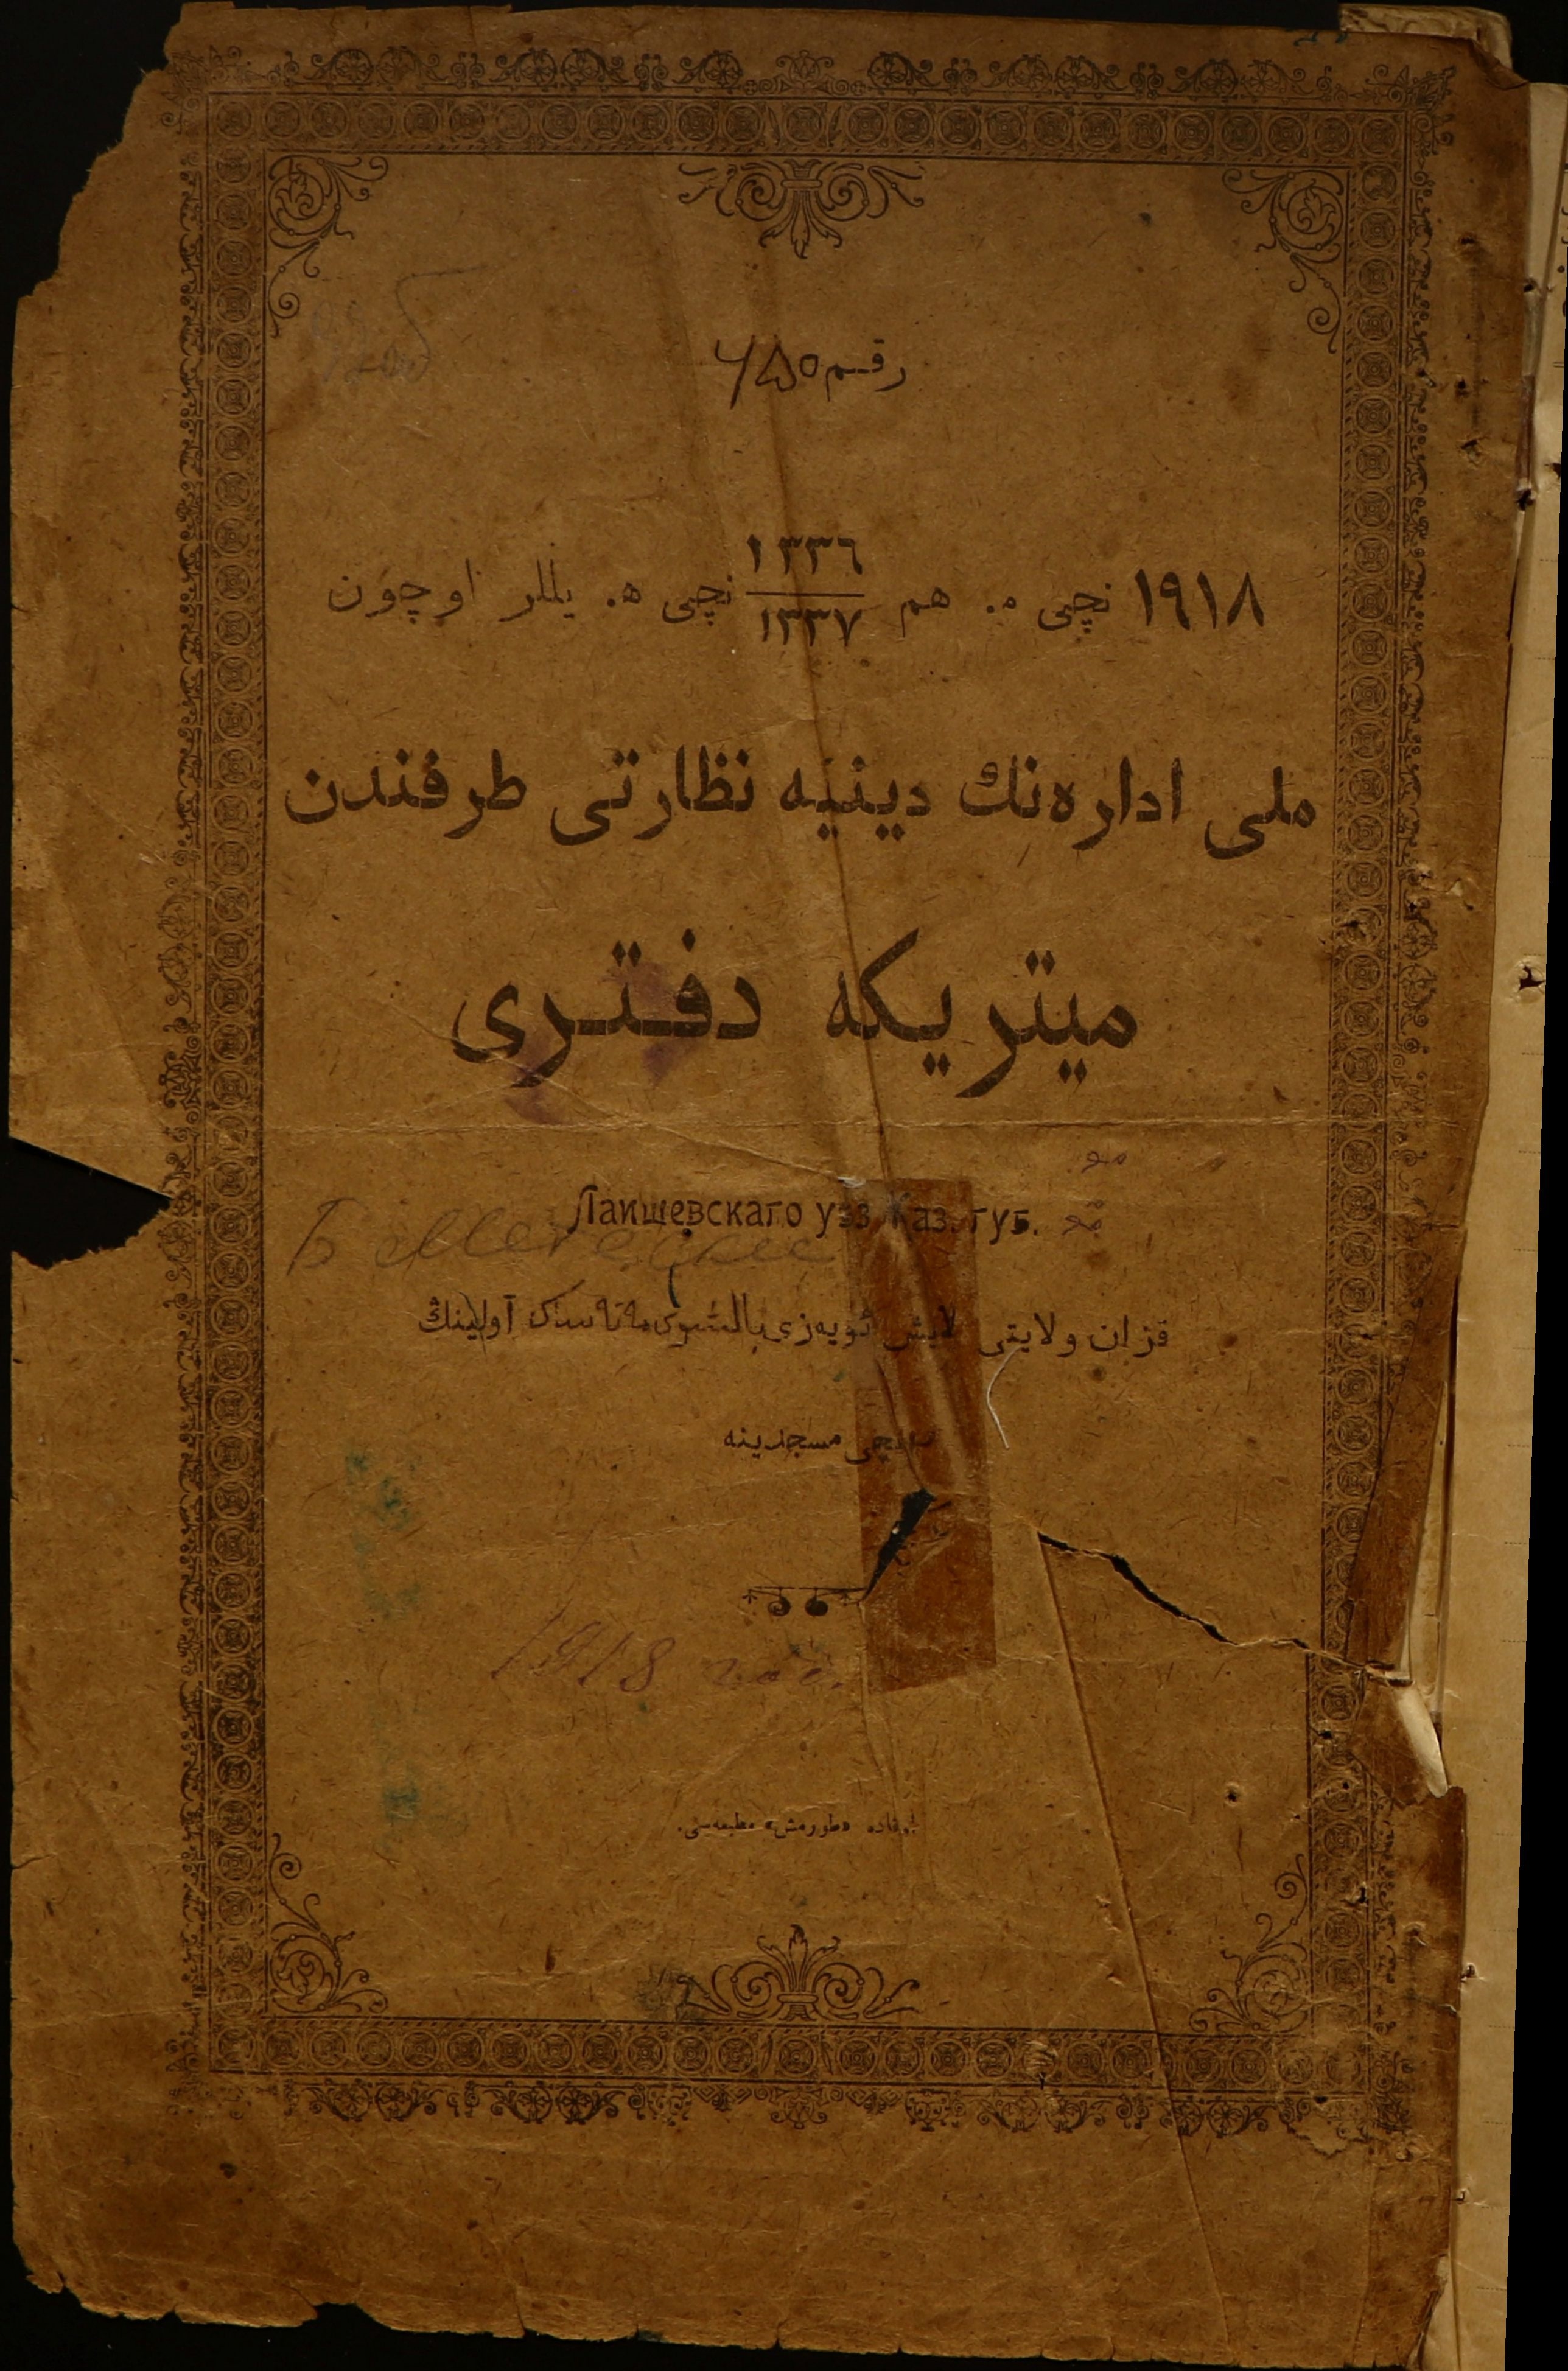 رقم ٦٥٠
١٩١٨ نچی م. هم ١٣٣٦ / ١٣٣٧ نچی ه. یللر اوچون
ملی اداره‌نڭ دینیه نظارتی طرفندن
میتریکه دفتری
Лаишевскаго уѣз. Каз. губ.
قزان ولایتی لایش ئویه‌زی آولینڭ
نچی مسجدینه
1918 год.
اوفاده «طورمش» مطبعه‌سی.